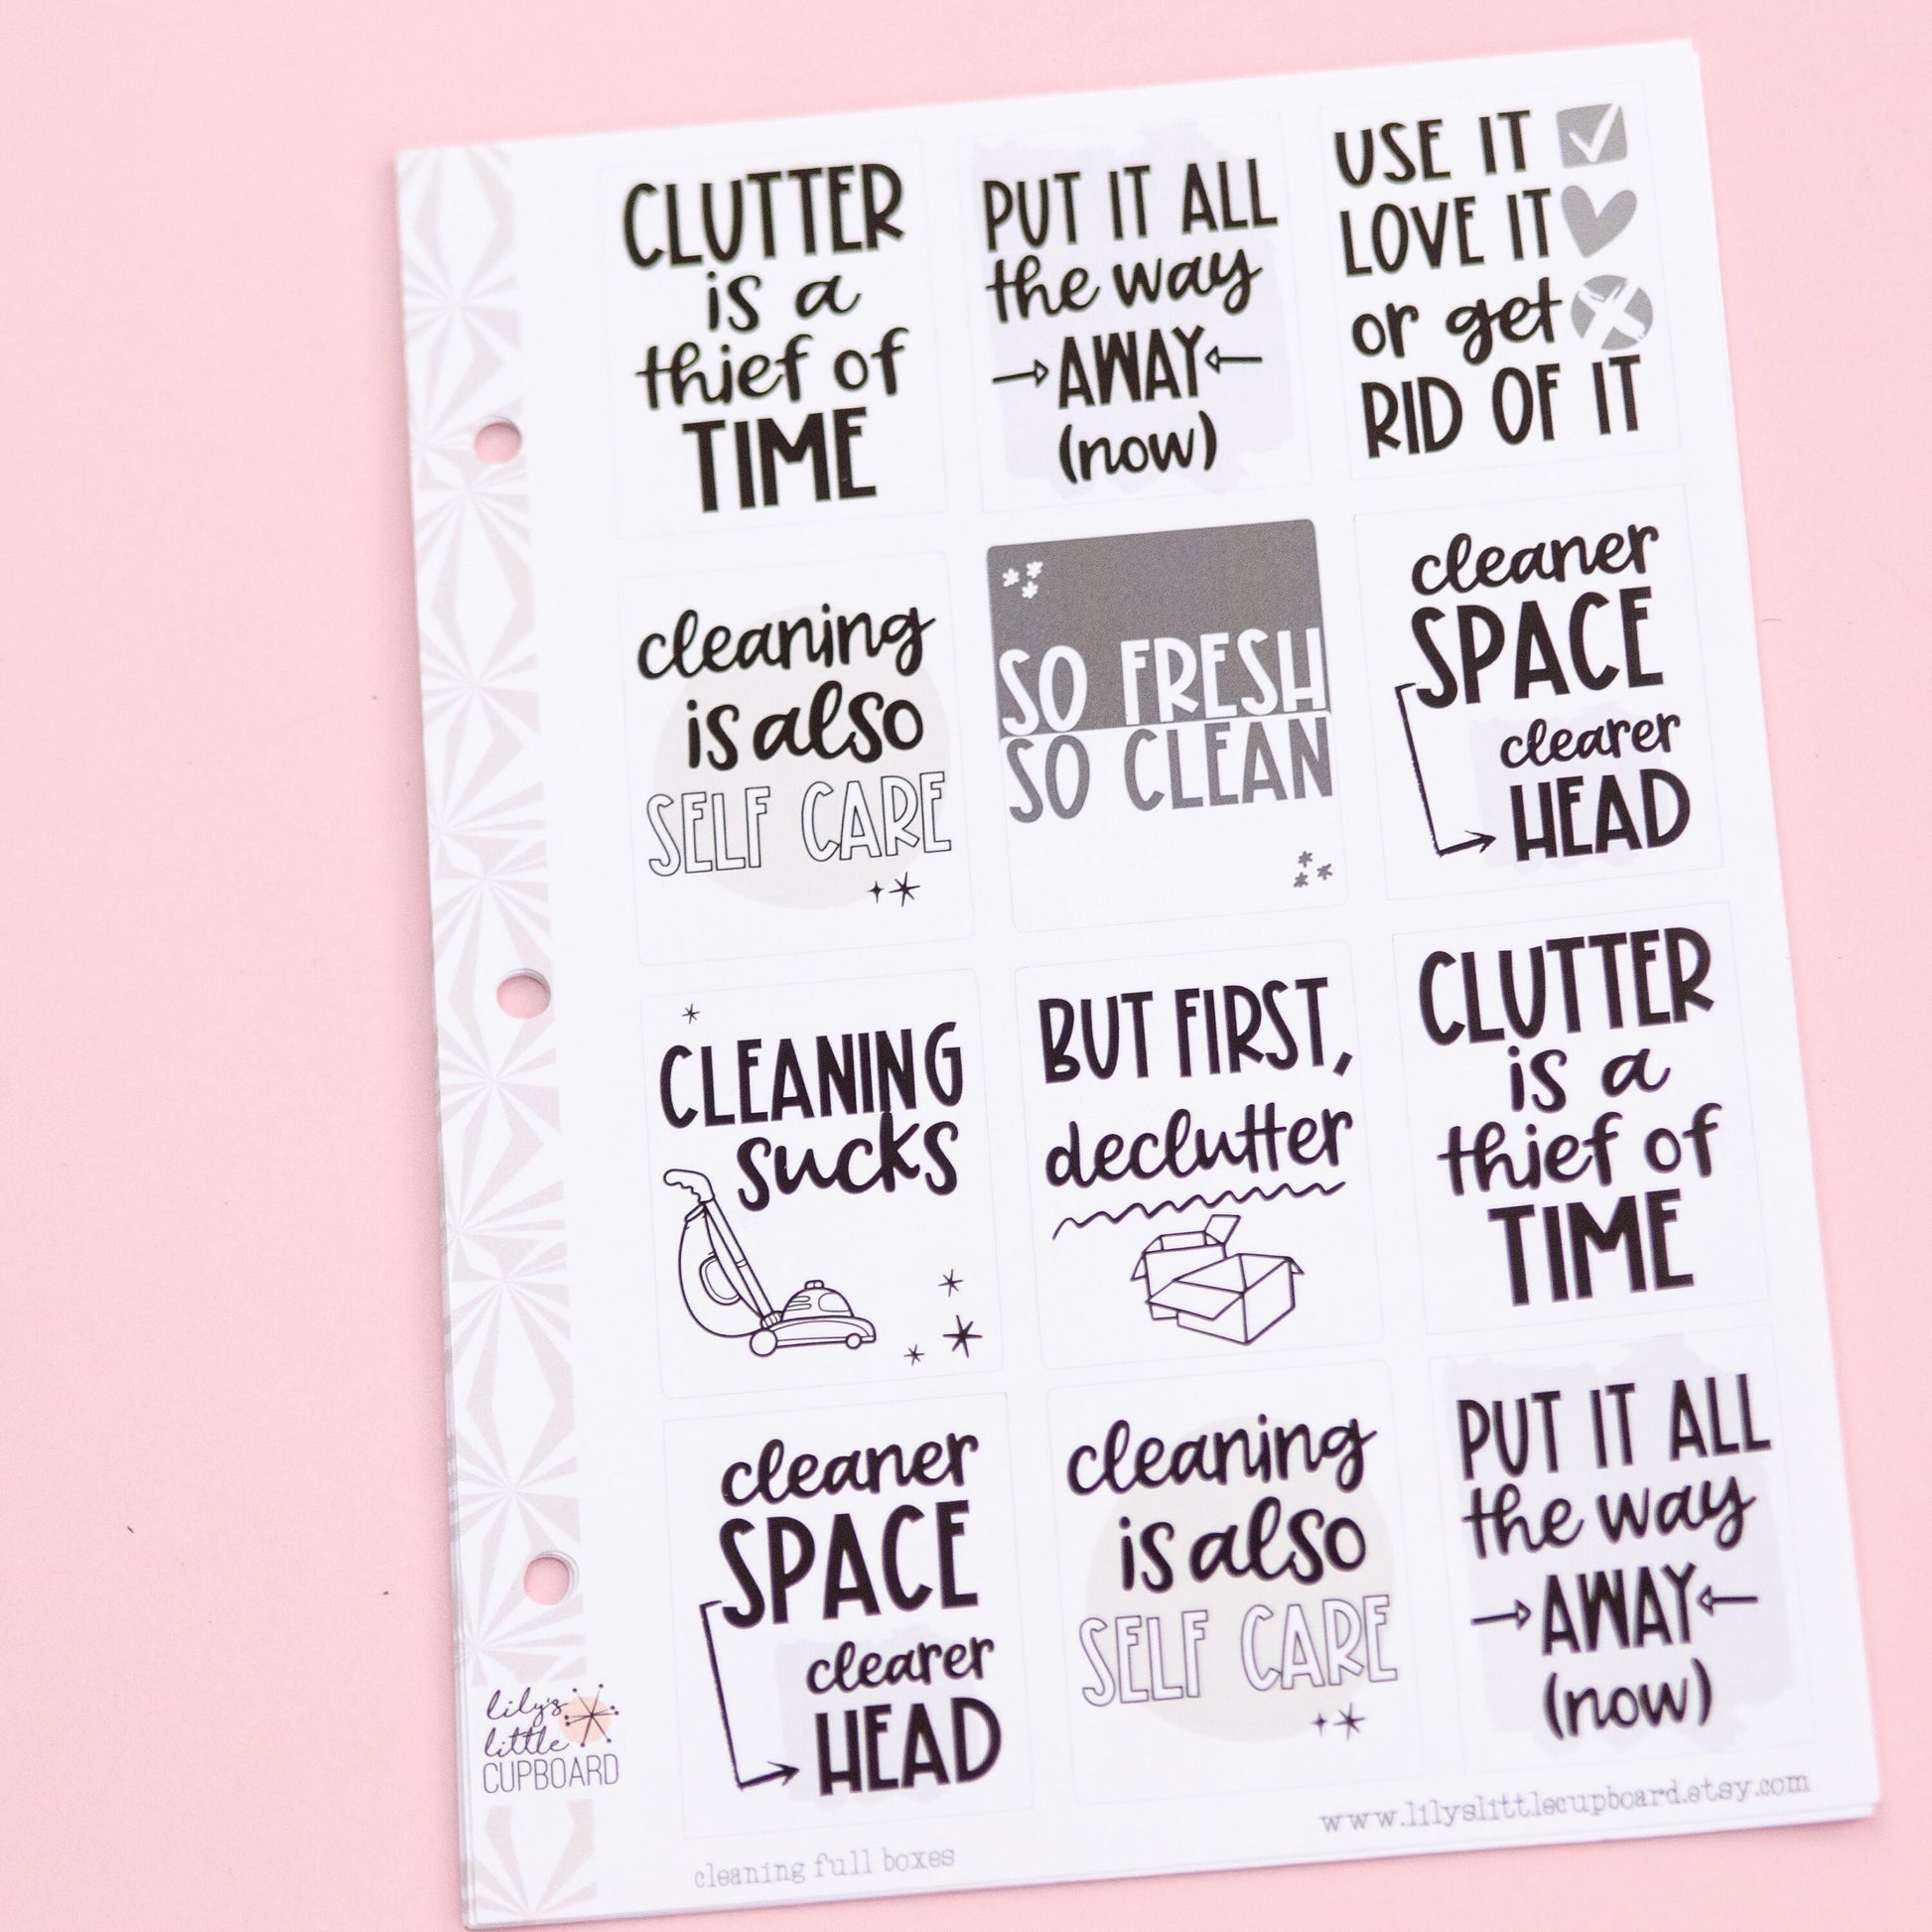 CLUTTER
is a
thief of
TIME
PUT IT ALL
the way
AWAY
(now)
USE IT
LOVE IT
or get
RID OF IT
cleaning
is also
SELF CARE
SO FRESH
SO CLEAN
cleaner
SPACE
clearer
HEAD
CLEANING
sucks
BUT FIRST,
declutter
CLUTTER
is a
thief of
TIME
cleaner
SPACE
clearer
HEAD
cleaning
is also
SELF CARE
PUT IT ALL
the way
AWAY
(now)
lily's
little
CUPBOARD
cleaning full boxes
www.lilyslittlecupboard.etsy.com